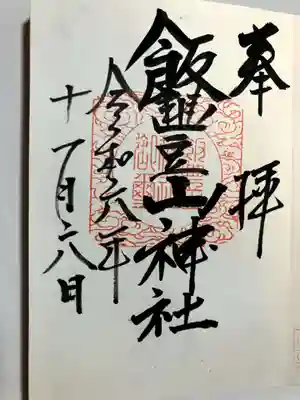 奉拝
飯豊山神社
令和六年
十一月二八日